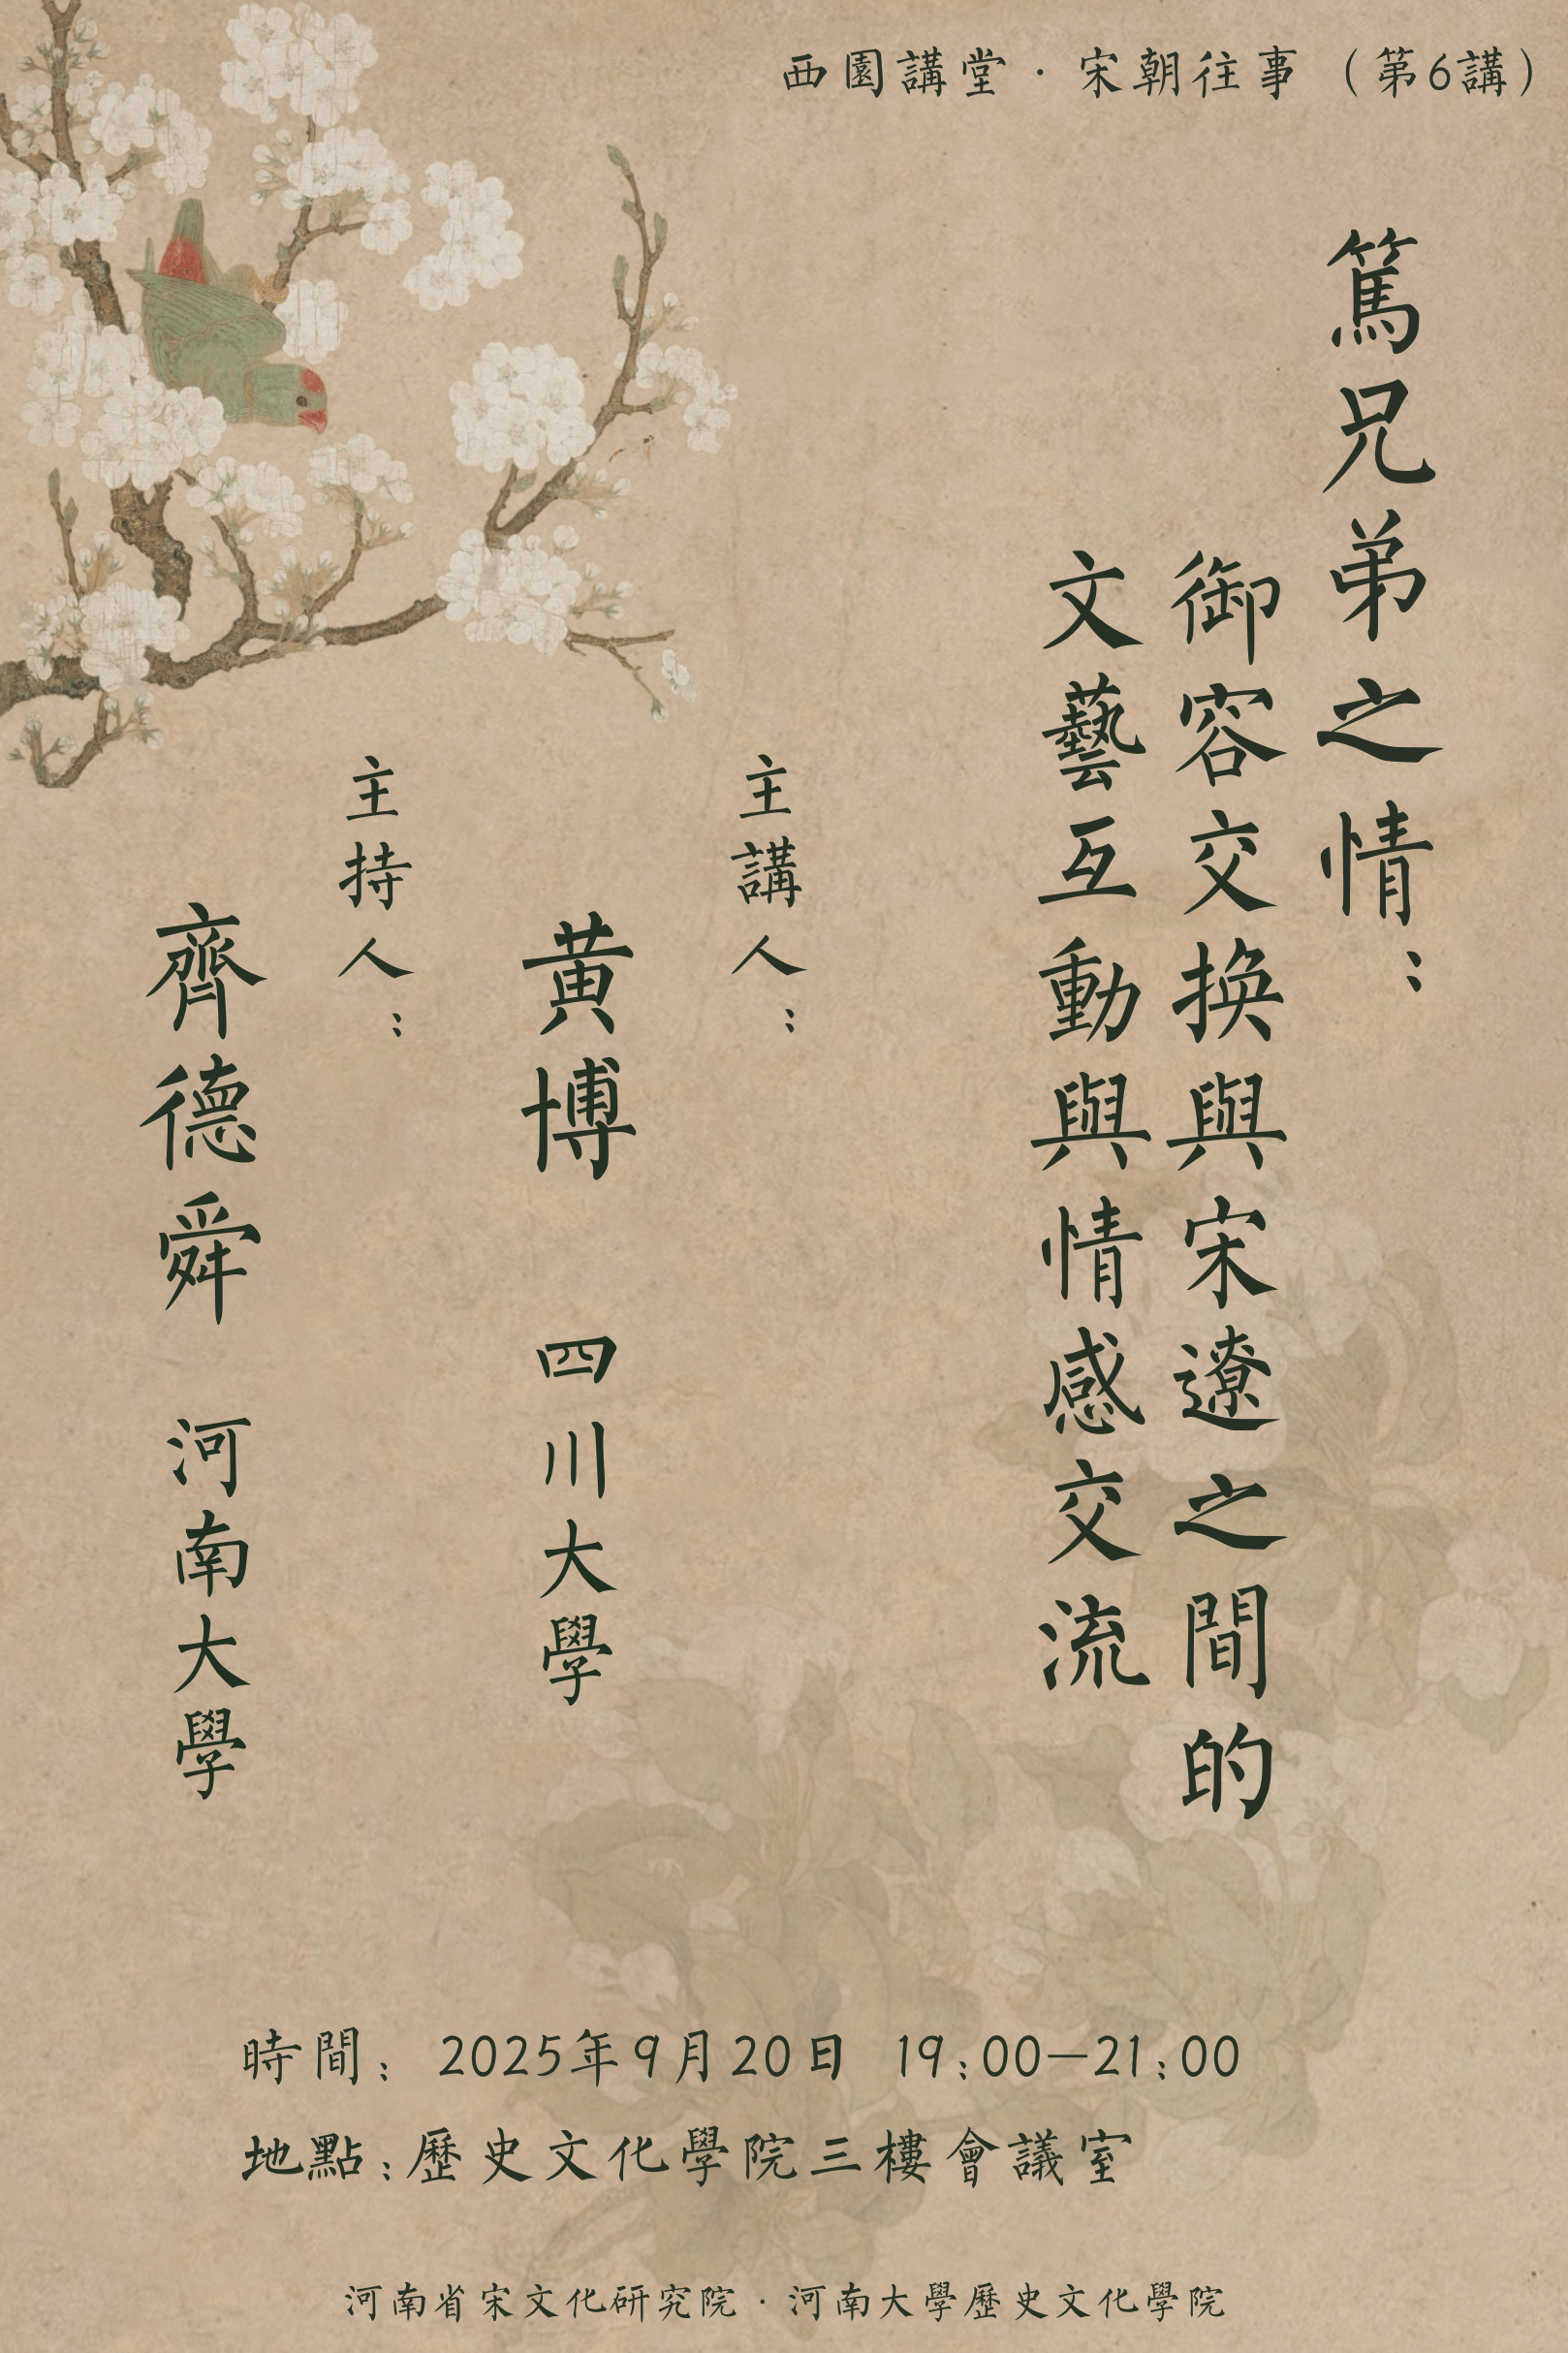 西園講堂·宋朝往事（第6講）
篤兄弟之情：
御容交換與宋遼之間的
文藝互動與情感交流
主講人：
黃博 四川大學
主持人：
齊德舜 河南大學
時間：2025年9月20日 19:00—21:00
地點：歷史文化學院三樓會議室
河南省宋文化研究院·河南大學歷史文化學院